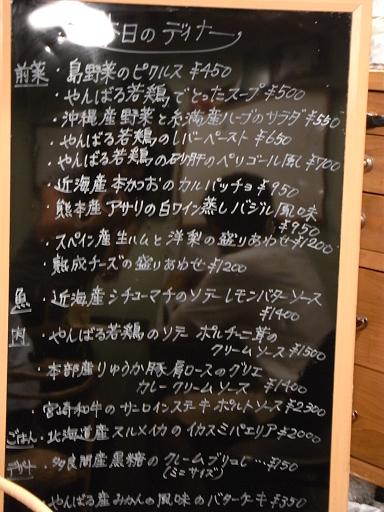 本日のディナー
前菜 ・島野菜のピクルス ¥450
・やんばる若鶏でとったスープ ¥500
・沖縄産野菜と糸満産ハーブのサラダ ¥550
・やんばる若鶏のレバーペースト ¥650
・やんばる若鶏の砂肝のペリゴール風 ¥700
・近海産本かつおのカルパッチョ ¥950
・熊本産アサリの白ワイン蒸しバジル風味
¥950
・スペイン産生ハムと洋梨の盛りあわせ ¥1200
・熟成チーズの盛りあわせ ¥1200
魚 ・近海産シチューマチのソテーレモンバターソース
¥1400
肉 ・やんばる若鶏のソテー ポルチーニ茸の
クリームソース ¥1500
・本部産りゅうか豚肩ロースのグリエ
カレークリームソース ¥1400
・宮崎和牛のサーロインステーキ ポルトソース ¥2300
ごはん ・北海道産スルメイカのイカスミパエリア ¥2000
デザート ・多良間産黒糖のクレームブリュレ… ¥150
(ミニサイズ)
・やんばる産みかんの風味のバターケーキ ¥350